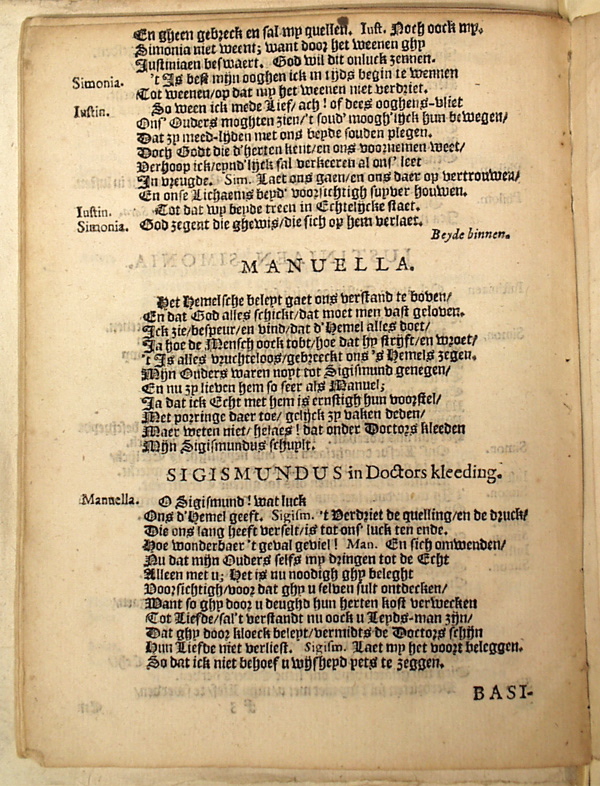 En gheen gebreck en sal my quellen. Iust. Noch oock my.
Simonia niet weent; want door het weenen ghy
Justiniaen beswaert. God wil dit onluck zennen.
Simonia. 't Is best mijn ooghen ick in tijds begin te wennen
Tot weenen/op dat my het weenen niet verdriet.
Iustin. So ween ick mede Lief/ach! of dees ooghens-vliet
Ons' Ouders moghten zien/'t soud' moogh'lijck hun bewegen/
Dat zy meed-lijden met ons beyde souden plegen.
Doch Godt die d'herten kent/en ons voornemen weet/
Verhoop ick/eynd'lijck sal verkeeren al ons' leet
In vreugde. Sim. Laet ons gaen/en ons daer op vertrouwen/
En onse Lichaems beyd' voorsichtigh suyver houwen.
Iustin. Tot dat wy beyde treen in Echtelijcke staet.
Simonia. God zegent die ghewis/die sich op hem verlaet.
Beyde binnen.
MANUELLA.
Het Hemelsche beleyt gaet ons verstand te boven/
En dat God alles schickt/dat moet men vast geloven.
Ick zie/bespeur/en vind/dat d'Hemel alles doet/
Ja hoe de Mensch oock tobt/hoe dat hy strijft/en wroet/
't Is alles vruchteloos/gebreeckt ons 's Hemels zegen.
Mijn Ouders waren noyt tot Sigismund genegen/
En nu zy lieven hem so seer als Manuel;
Ja dat ick Echt met hem is ernstigh hun voorstel/
Met porringe daer toe/ gelijck zy vaken deden/
Maer weten niet/helaes! dat onder Doctors kleeden
Mijn Sigismundus schuylt.
SIGISMUNDUS in Doctors kleeding.
Manuella. O Sigismund! wat luck
Ons d'Hemel geeft. Sigism. 't Verdriet de quelling/en de druck/
Die ons lang heeft verselt/is tot ons' luck ten ende.
Hoe wonderbaer 't geval geviel! Man. En sich omwenden/
Nu dat mijn Ouders selfs my dringen tot de Echt
Alleen met u; Het is nu noodigh ghy beleght
Voorsichtigh/voor dat ghy u selven sult ontdecken/
Want so ghy door u deughd hun herten kost verwecken
Tot Liefde/sal't verstandt nu oock u Leyds-man zijn/
Dat ghy door kloeck beleyt/vermidts de Doctors schijn
Hun Liefde niet verliest. Sigism. Laet my het voort beleggen.
So dat ick niet behoef u wijsheyd yets te zeggen.
BASI-